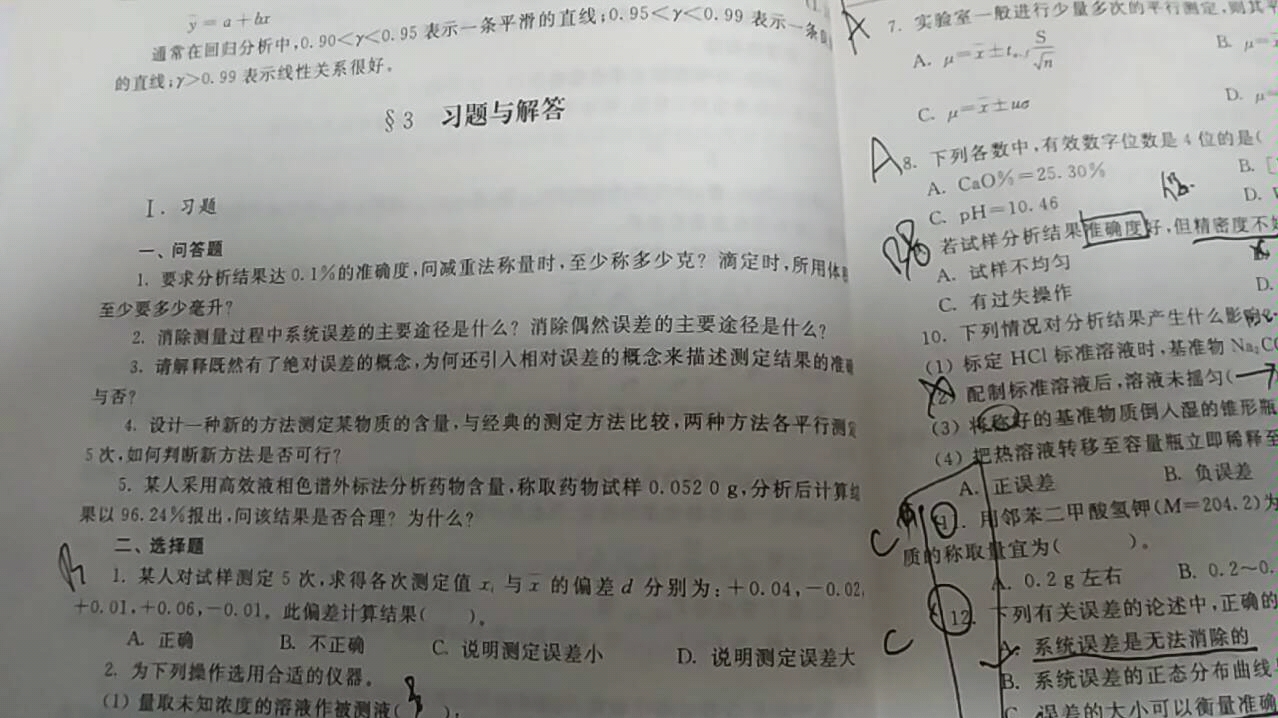 y = a + bx
通常在回归分析中,0.90<γ<0.95 表示一条平滑的直线;0.95<γ<0.99 表示一条
的直线;γ>0.99 表示线性关系很好。
§3 习题与解答
Ⅰ. 习题
一、问答题
1. 要求分析结果达 0.1%的准确度,问减重法称量时,至少称多少克? 滴定时,所用体
至少要多少毫升?
2. 消除测量过程中系统误差的主要途径是什么? 消除偶然误差的主要途径是什么?
3. 请解释既然有了绝对误差的概念,为何还引入相对误差的概念来描述测定结果的准
与否?
4. 设计一种新的方法测定某物质的含量,与经典的测定方法比较,两种方法各平行测
5 次,如何判断新方法是否可行?
5. 某人采用高效液相色谱外标法分析药物含量,称取药物试样 0.052 0 g,分析后计算
果以 96.24%报出,问该结果是否合理? 为什么?
二、选择题
1. 某人对试样测定 5 次,求得各次测定值 xᵢ 与 x̄ 的偏差 d 分别为:+0.04,-0.02,
+0.01,+0.06,-0.01。此偏差计算结果( )。
A. 正确 B. 不正确 C. 说明测定误差小 D. 说明测定误差大
2. 为下列操作选用合适的仪器。
(1) 量取未知浓度的溶液作被测液( ),
A 7. 实验室一般进行少量多次的平行测定,则其平
A. μ=x̄±t S/√n B. μ=
C. μ=x̄±uσ D. μ=
A 8. 下列各数中,有效数字位数是 4 位的是(
A. CaO%=25.30% B. [
C. pH=10.46 D.
若试样分析结果准确度好,但精密度不
A. 试样不均匀
C. 有过失操作 D.
10. 下列情况对分析结果产生什么影响
(1) 标定 HCl 标准溶液时,基准物 Na₂C
(2) 配制标准溶液后,溶液未摇匀(
(3) 将称好的基准物质倒入湿的锥形瓶
(4) 把热溶液转移至容量瓶立即稀释至
A. 正误差 B. 负误差
C 11. 用邻苯二甲酸氢钾(M=204.2)为
质的称取量宜为( )。
A. 0.2 g 左右 B. 0.2~0.
C 12. 下列有关误差的论述中,正确的
A. 系统误差是无法消除的
B. 系统误差的正态分布曲线
C. 误差的大小可以衡量准确